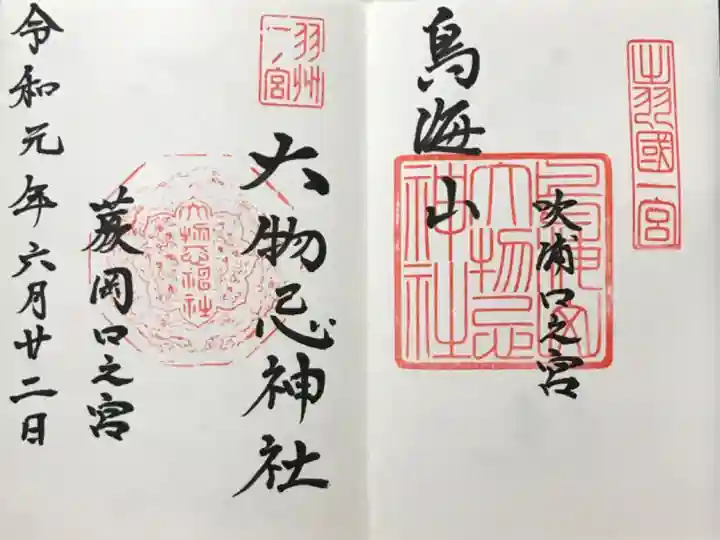 出羽國一宮
吹浦口之宮
鳥海山
鳥海山
大物忌
神社
羽州
一ノ宮
大物忌神社
蕨岡口之宮
大物忌神社
令和元年六月廿二日